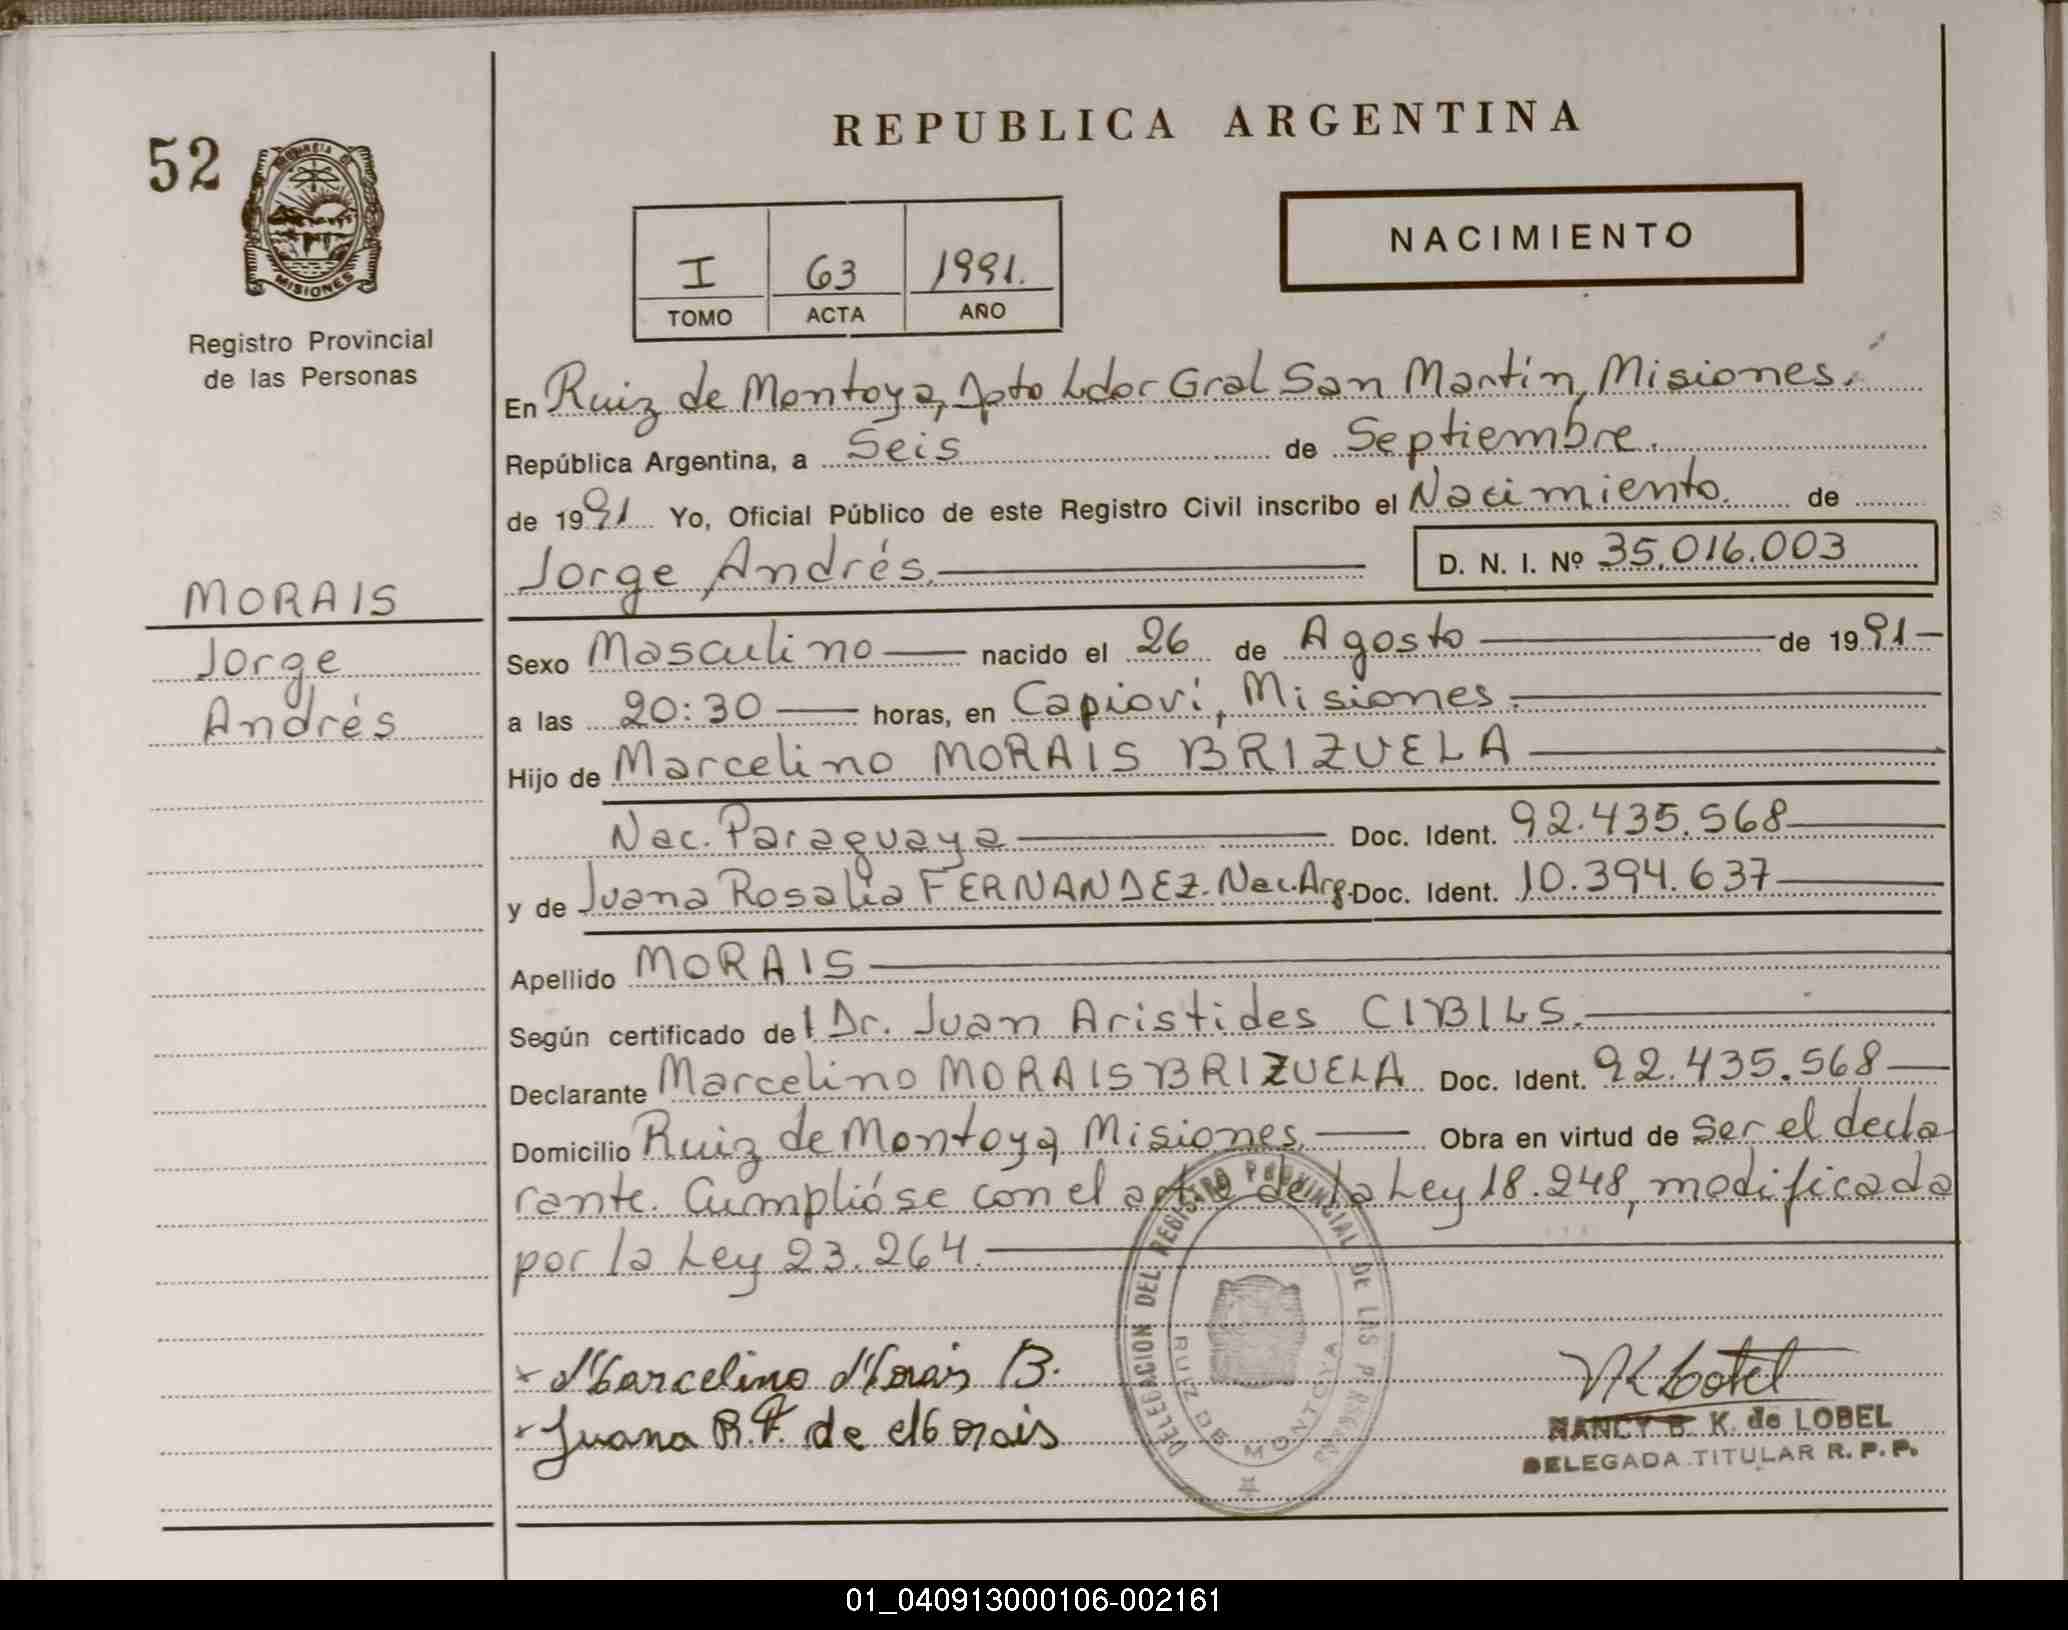 REPUBLICA ARGENTINA
52
PROVINCIA DE
MISIONES
Registro Provincial
de las Personas
NACIMIENTO
I 63 1991.
TOMO ACTA AÑO
En Ruiz de Montoya, Dpto Ldor Gral San Martín, Misiones.
República Argentina, a Seis de Septiembre.
de 1991 Yo, Oficial Público de este Registro Civil inscribo el Nacimiento. de
Jorge Andrés. D. N. I. Nº 35.016.003
MORAIS
Jorge
Andrés
Sexo Masculino nacido el 26 de Agosto de 1991
a las 20:30 horas, en Capioví, Misiones.
Hijo de Marcelino MORAIS BRIZUELA
Nac. Paraguaya Doc. Ident. 92.435.568
y de Juana Rosalia FERNANDEZ. Nac. Arg. Doc. Ident. 10.394.637
Apellido MORAIS
Según certificado del Dr. Juan Aristides CIBILS.
Declarante Marcelino MORAIS BRIZUELA Doc. Ident. 92.435.568
Domicilio Ruiz de Montoya Misiones. Obra en virtud de ser el decla
rante. Cumplióse con el arto de la Ley 18.248, modificada
por la Ley 23.264.
DELEGACION DEL REGISTRO PROVINCIAL DE LAS PERSONAS
RUIZ DE MONTOYA
x Marcelino Morais B.
x Juana R. F. de Morais
NANCY B. K. de LOBEL
DELEGADA TITULAR R. P. P.
01_040913000106-002161